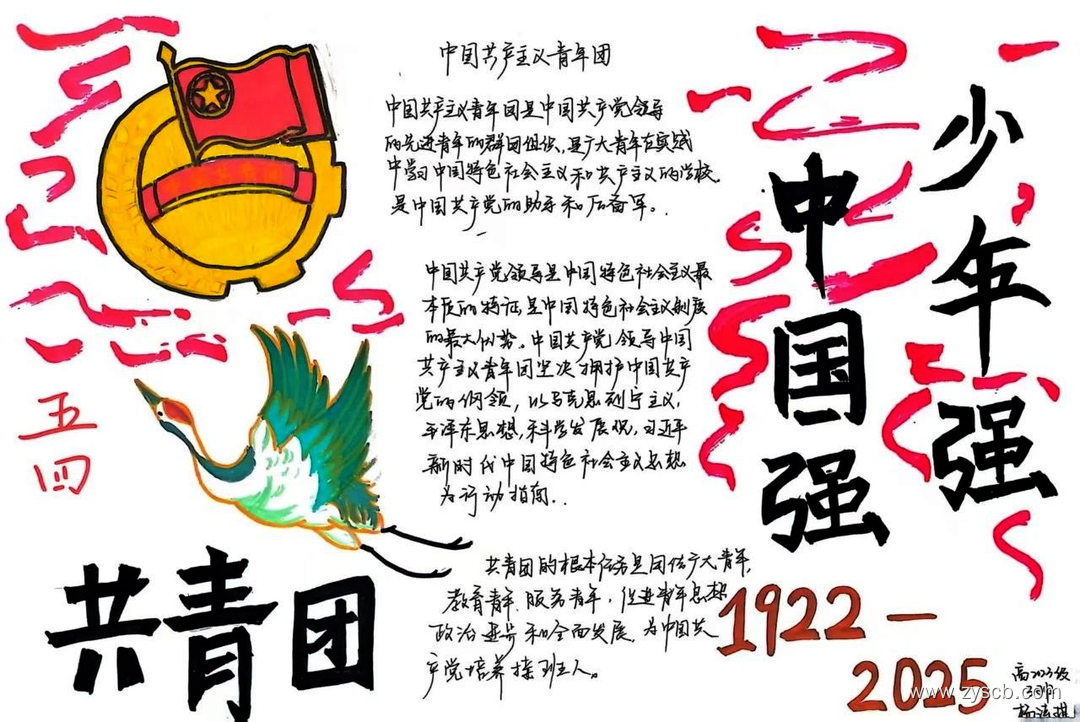 中国共产主义青年团
中国共产主义青年团是中国共产党领导
的先进青年的群团组织,是广大青年在实践
中学习中国特色社会主义和共产主义的学校,
是中国共产党的助手和后备军。
中国共产党领导是中国特色社会主义最
本质的特征是中国特色社会主义制度
的最大优势。中国共产党领导中国
共产主义青年团坚决拥护中国共产
党的纲领,以马克思列宁主义,
毛泽东思想,科学发展观,习近平
新时代中国特色社会主义思想
为行动指南..
共青团的根本任务是团结广大青年,
教育青年、服务青年,促进青年思想
政治进步和全面发展,为中国共
产党培养接班人。
少年强
中国强
五四
共青团
1922—
2025
www.zyscb.com